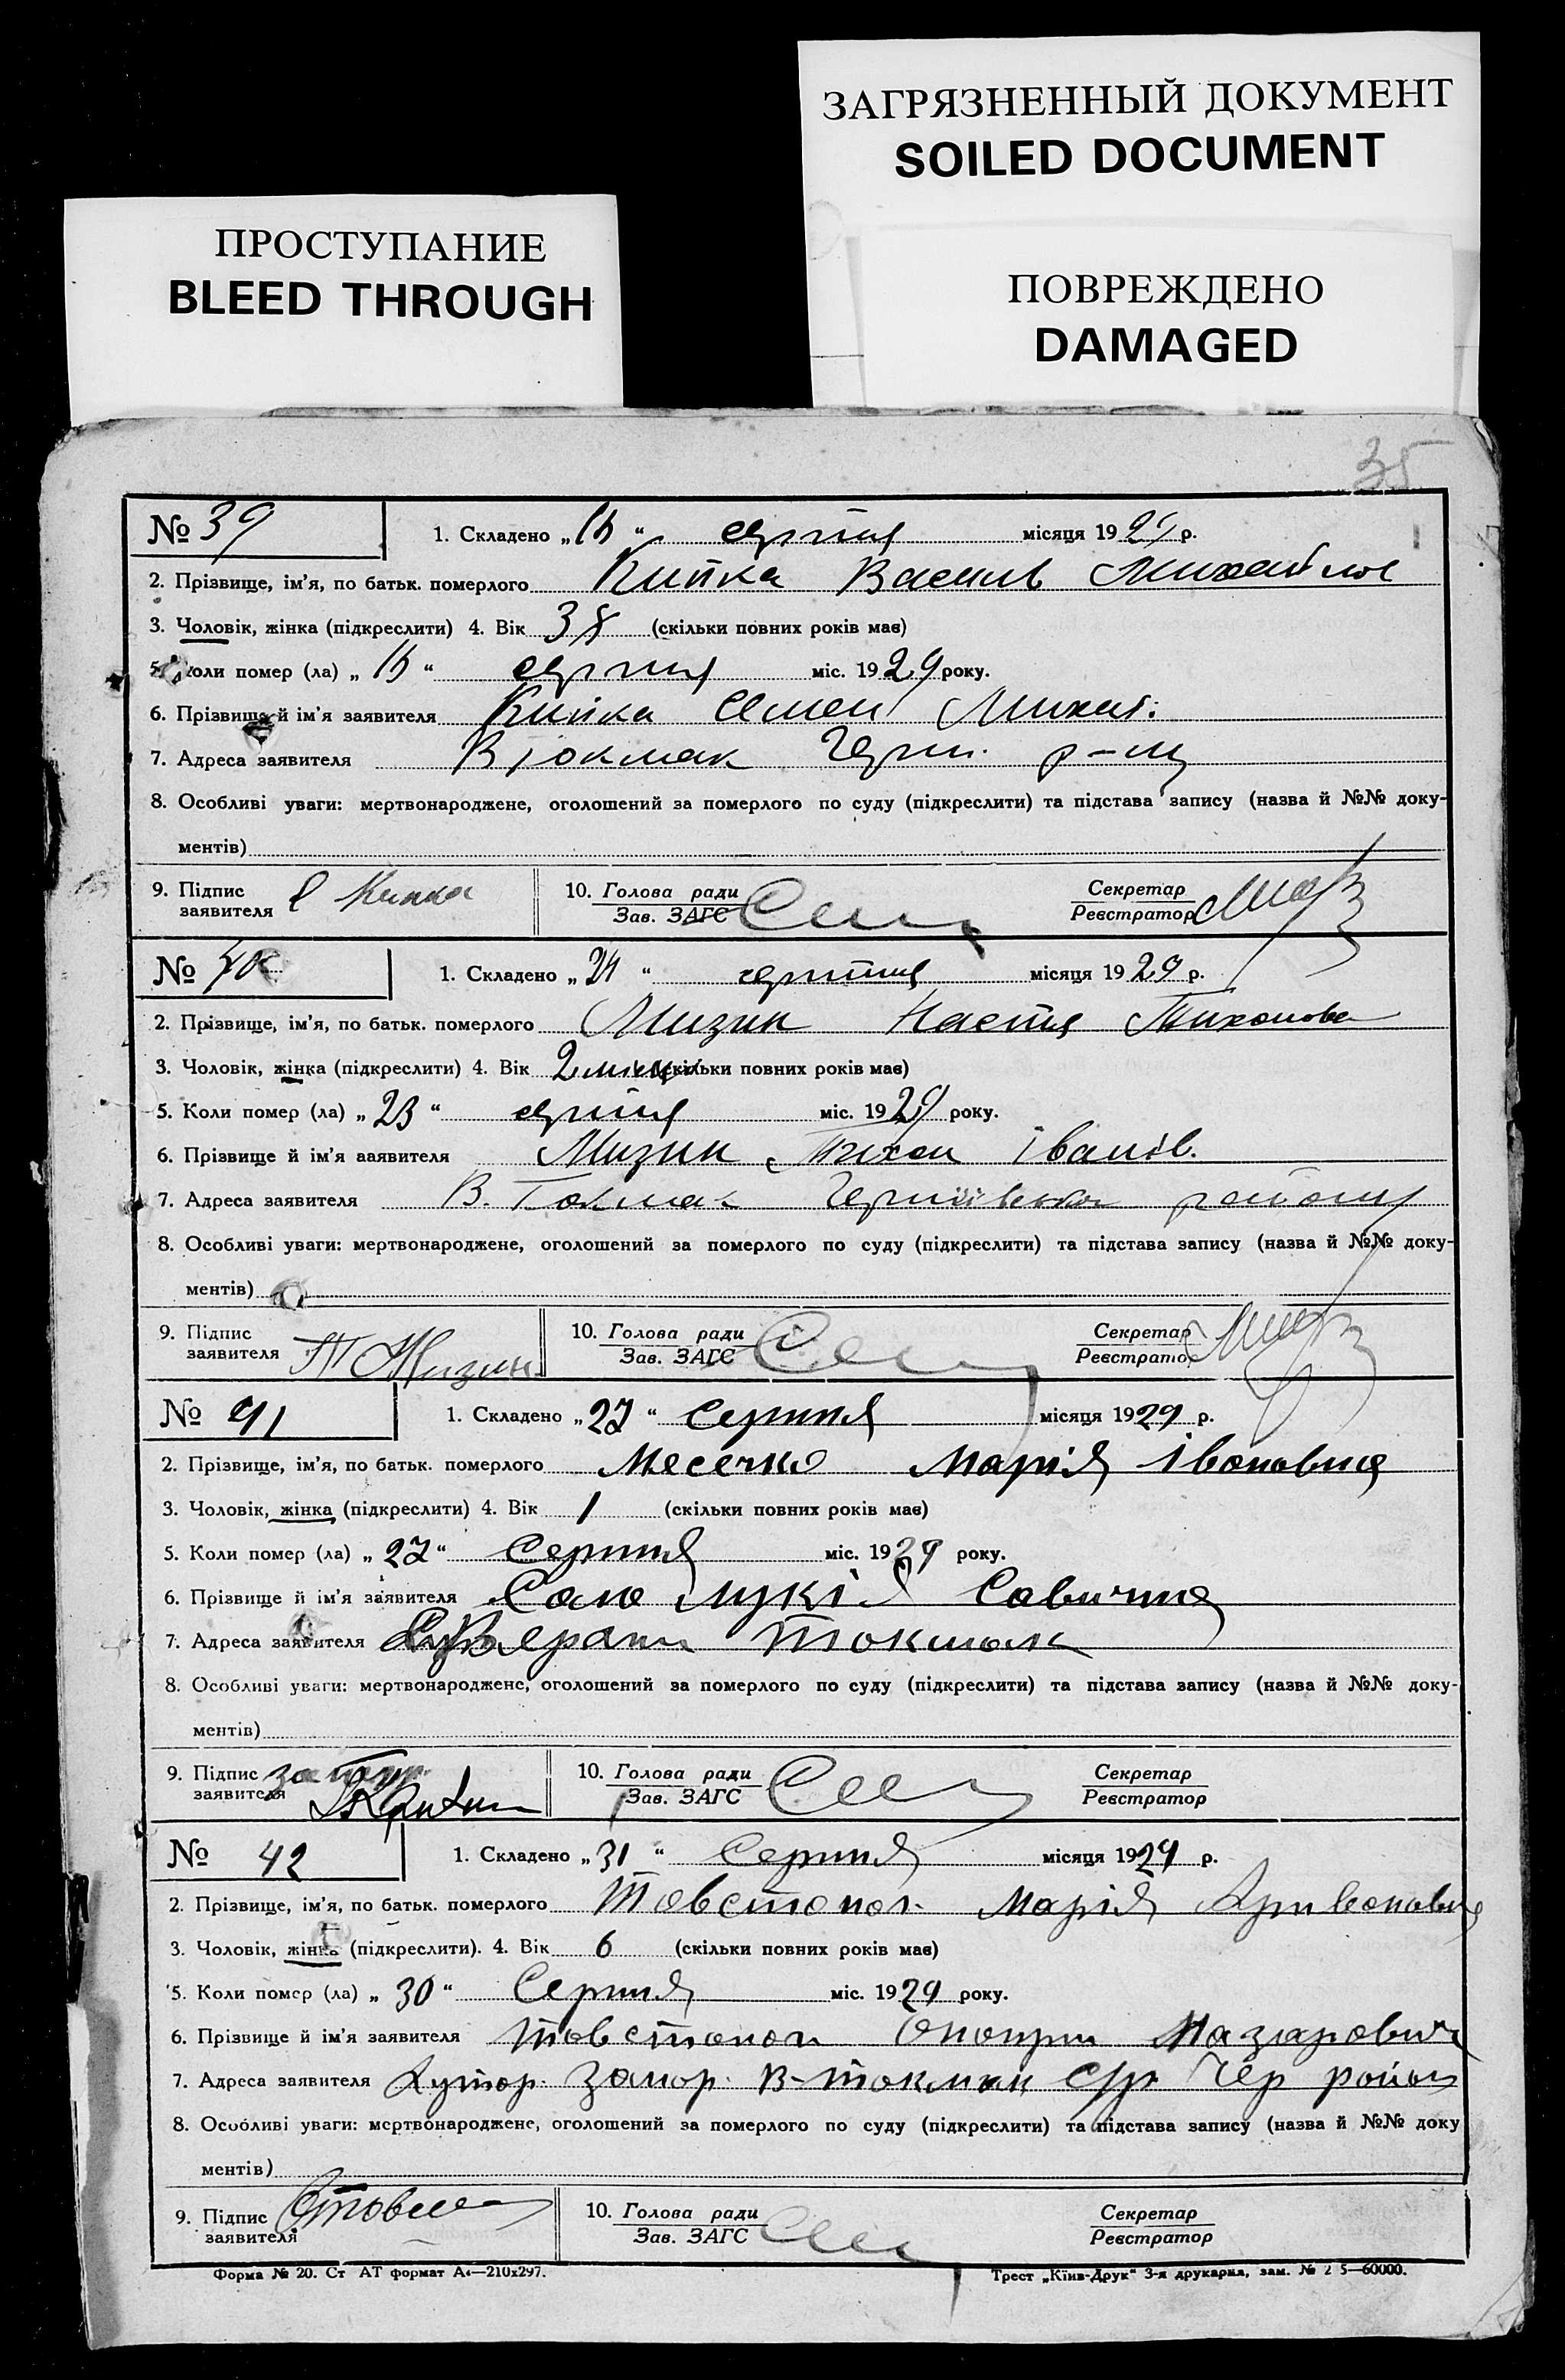 ЗАГРЯЗНЕННЫЙ ДОКУМЕНТ
SOILED DOCUMENT
ПРОСТУПАНИЕ
BLEED THROUGH
ПОВРЕЖДЕНО
DAMAGED
35
№ 39 1. Складено „ “ серпня місяця 1929 р.
2. Прізвище, ім'я, по батьк. померлого Кипка Василь Михайлов
3. Чоловік, жінка (підкреслити) 4. Вік 38 (скільки повних років має)
5. Коли помер (ла) „ “ серпня міс. 1929 року.
6. Прізвище й ім'я заявителя Кипка Семен Михай.
7. Адреса заявителя В Токмак Черн. р-ну
8. Особливі уваги: мертвонароджене, оголошений за померлого по суду (підкреслити) та підстава запису (назва й №№ доку-
ментів)
9. Підпис заявителя С Кипка 10. Голова ради Зав. ЗАГС Секретар Реєстратор
№ 40 1. Складено „24“ серпня місяця 1929 р.
2. Прізвище, ім'я, по батьк. померлого Мизин Настя Тихонова
3. Чоловік, жінка (підкреслити) 4. Вік 2 (скільки повних років має)
5. Коли помер (ла) „23“ серпня міс. 1929 року.
6. Прізвище й ім'я заявителя Мизин Тихон Іванів.
7. Адреса заявителя В. Токмак Чернігівськ. району
8. Особливі уваги: мертвонароджене, оголошений за померлого по суду (підкреслити) та підстава запису (назва й №№ доку-
ментів)
9. Підпис заявителя Т Мизин 10. Голова ради Зав. ЗАГС Секретар Реєстратор
№ 41 1. Складено „27“ Серпня місяця 1929 р.
2. Прізвище, ім'я, по батьк. померлого Месечко Марія Івановна
3. Чоловік, жінка (підкреслити) 4. Вік 1 (скільки повних років має)
5. Коли помер (ла) „27“ Серпня міс. 1929 року.
6. Прізвище й ім'я заявителя Сало Лукія Савична
7. Адреса заявителя Токмак
8. Особливі уваги: мертвонароджене, оголошений за померлого по суду (підкреслити) та підстава запису (назва й №№ доку-
ментів)
9. Підпис заявителя 10. Голова ради Зав. ЗАГС Секретар Реєстратор
№ 42 1. Складено „31“ Серпня місяця 1929 р.
2. Прізвище, ім'я, по батьк. померлого Товстопол. Марія
3. Чоловік, жінка (підкреслити). 4. Вік 6 (скільки повних років має)
5. Коли помер (ла) „30“ Серпня міс. 1929 року.
6. Прізвище й ім'я заявителя Товстопол Оноприй Назарович
7. Адреса заявителя Хутор. Запор. В-Токмак с/р Чер район
8. Особливі уваги: мертвонароджене, оголошений за померлого по суду (підкреслити) та підстава запису (назва й №№ доку
ментів)
9. Підпис заявителя 10. Голова ради Зав. ЗАГС Секретар Реєстратор
Форма № 20. Ст АТ формат А4—210х297. Трест „Київ-Друк“ 3-я друкарня, зам. № 2 5—60000.